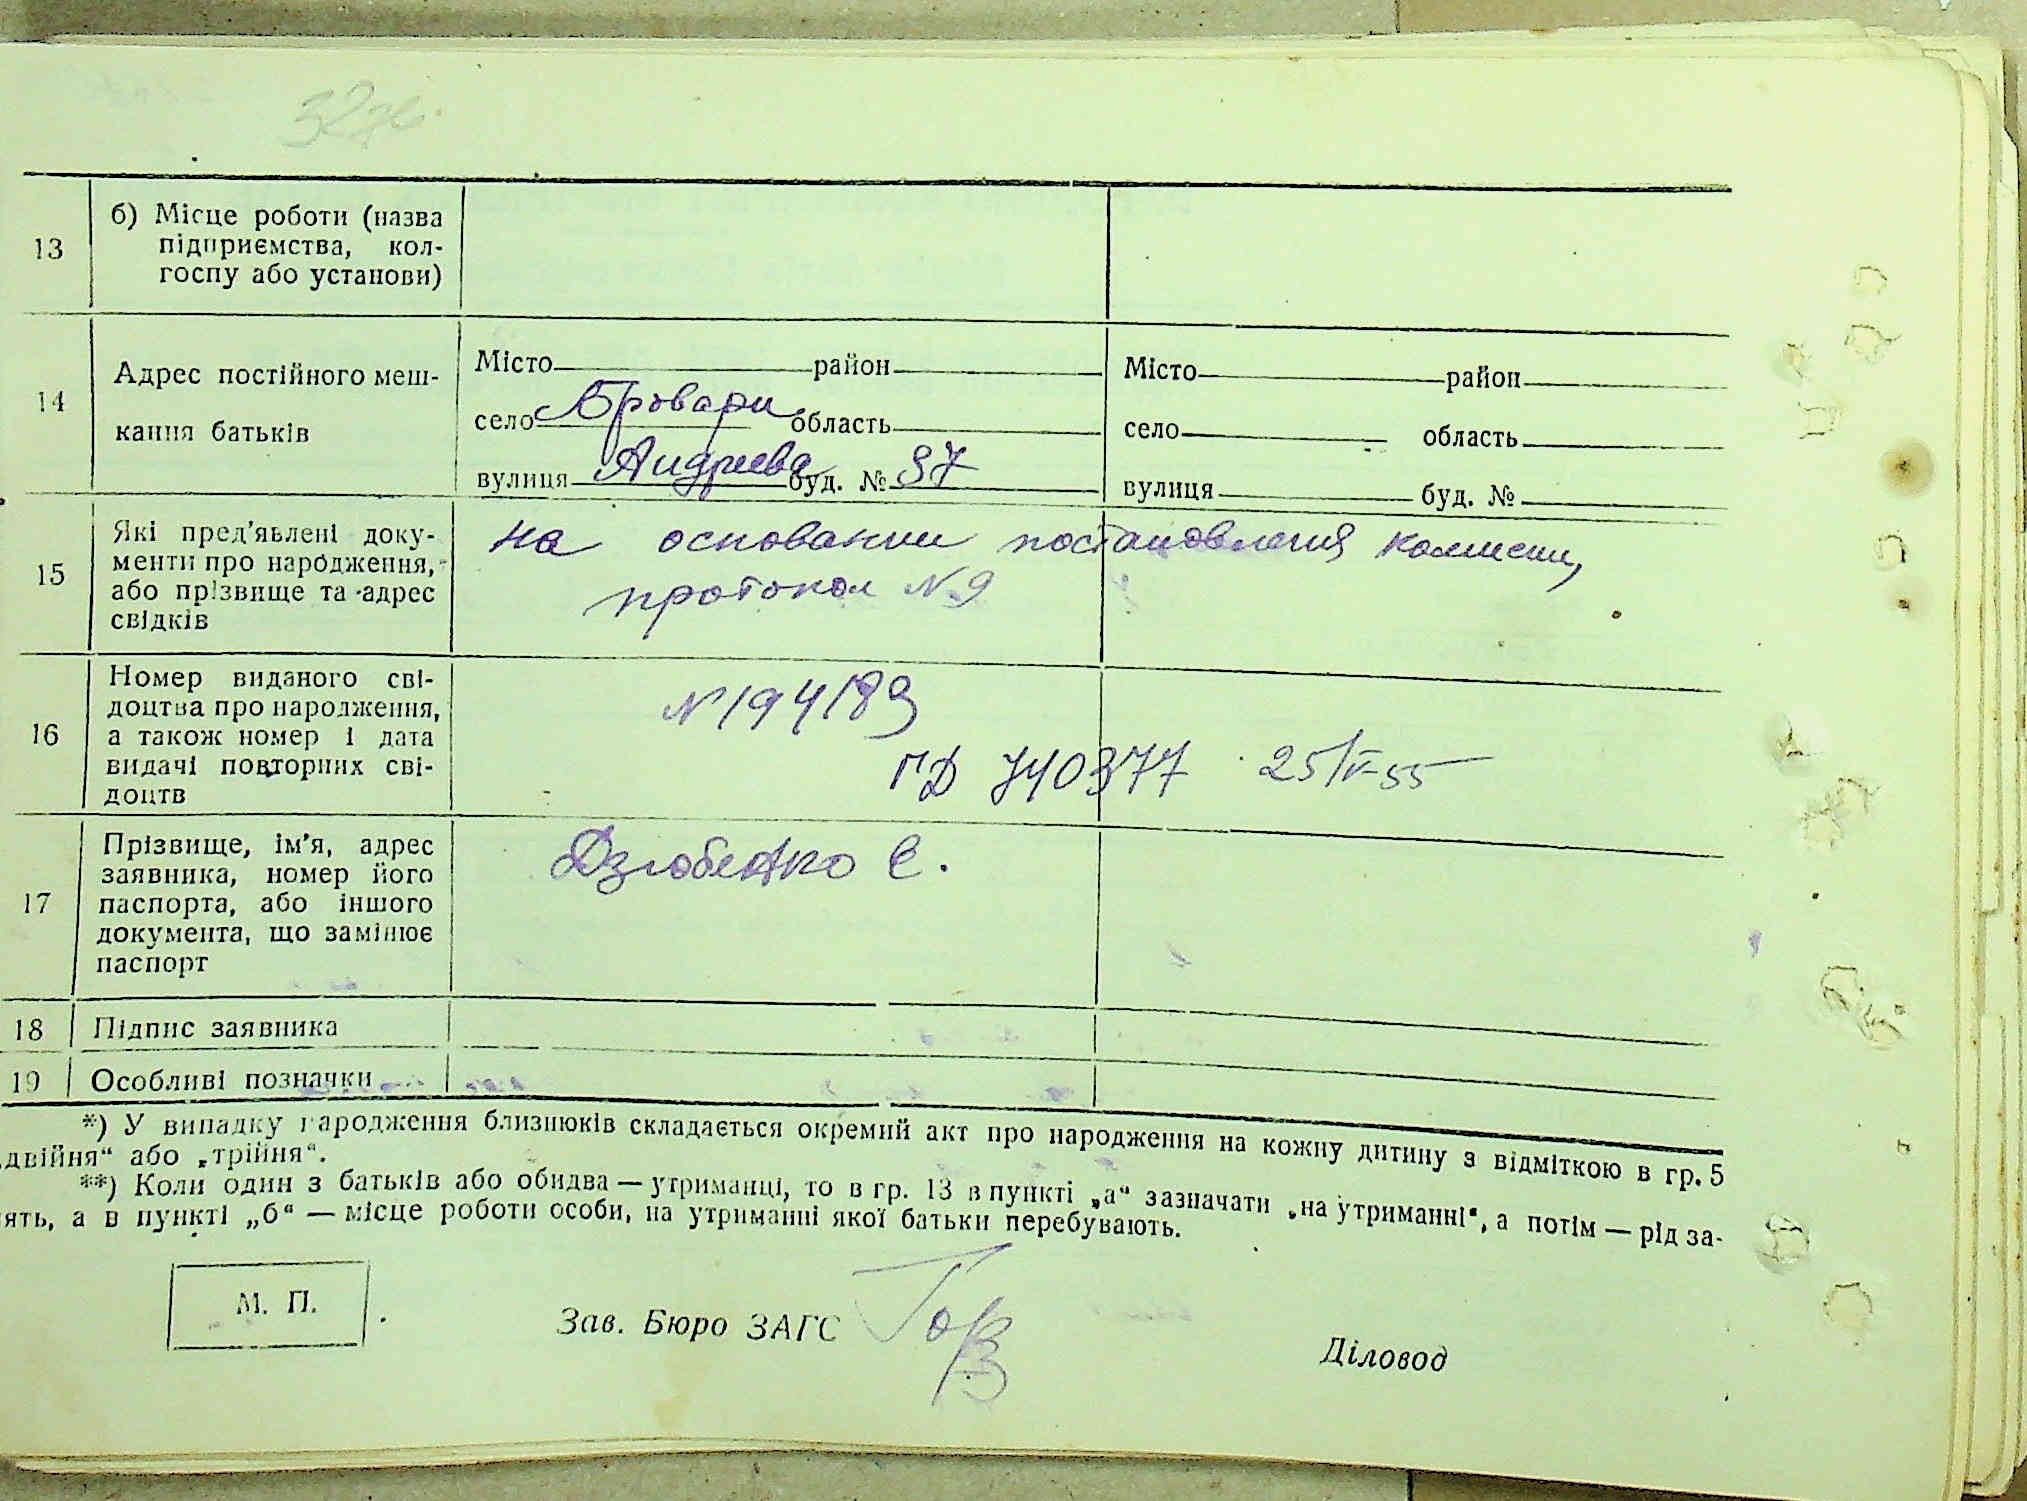 32
13
б) Місце роботи (назва
підприємства, кол-
госпу або установи)
14
Адрес постійного меш-
кання батьків
Місто район
село Бровари область
вулиця Андреева буд. № 37
Місто район
село область
вулиця буд. №
15
Які пред'явлені доку-
менти про народження,
або прізвище та адрес
свідків
на основании постановления комиссии,
протокол №9
16
Номер виданого сві-
доцтва про народження,
а також номер і дата
видачі повторних сві-
доцтв
№194189
ГД 740377 25/V-55
17
Прізвище, ім'я, адрес
заявника, номер його
паспорта, або іншого
документа, що замінює
паспорт
Дзюбенко Є.
18 Підпис заявника
19 Особливі позначки
*) У випадку народження близнюків складається окремий акт про народження на кожну дитину з відміткою в гр. 5
„двійня“ або „трійня“.
**) Коли один з батьків або обидва — утриманці, то в гр. 13 в пункті „а“ зазначати „на утриманні“, а потім — рід за-
ять, а в пункті „б“ — місце роботи особи, на утриманні якої батьки перебувають.
М. П.
Зав. Бюро ЗАГС
Діловод